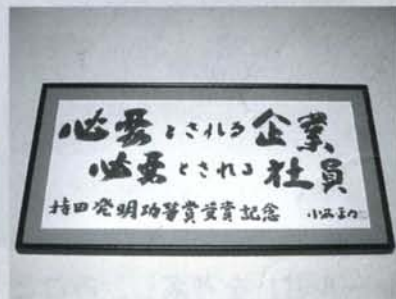 必要とされる企業
必要とされる社員
持田発明功労賞受賞記念